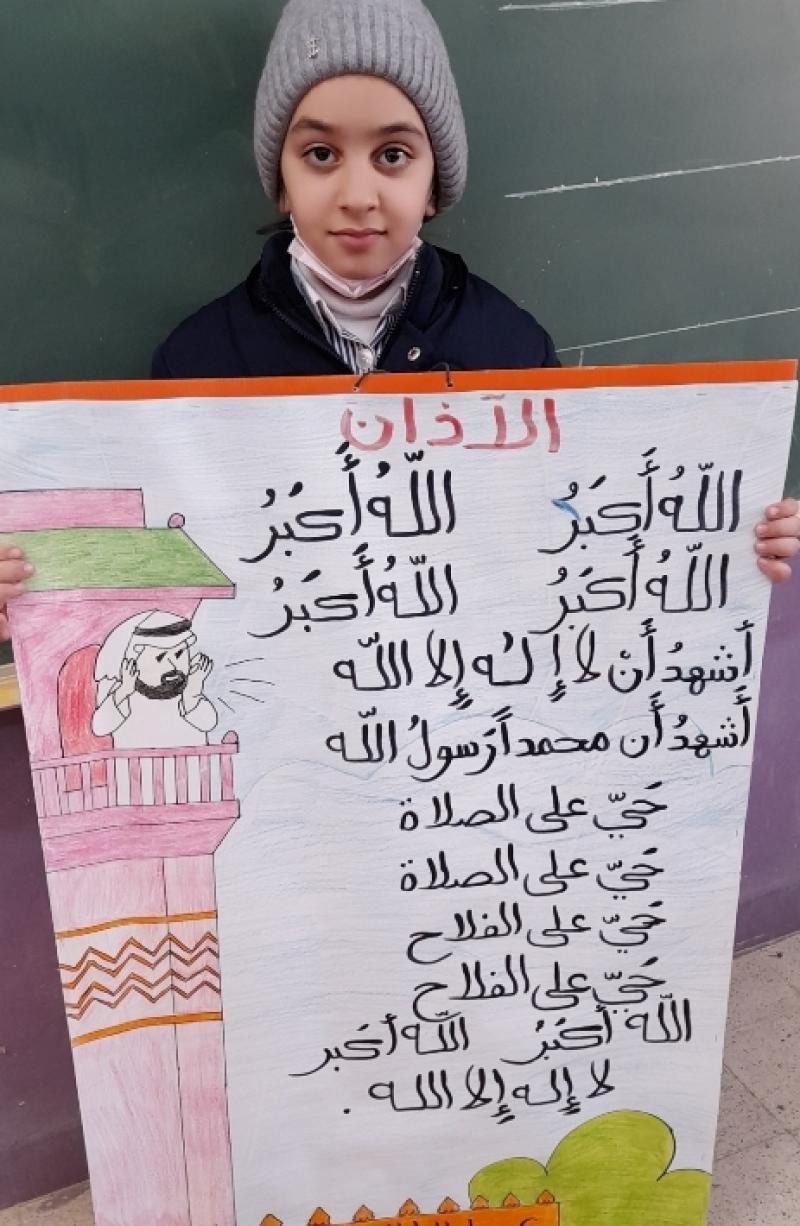 الآذان
اللّهُ أَكبَرُ اللّهُ أَكبَرُ
اللّهُ أَكبَرُ اللّهُ أَكبَرُ
أَشهدُ أَنْ لا إِله إِلا اللّه
أَشهدُ أَن محمداً رَسولُ اللّه
حَيّ على الصلاة
حَيّ على الصلاة
حَيّ على الفلاح
حَيّ على الفلاح
اللّه أَكبَرُ اللّه أكبر
لا إِله إِلا الله .